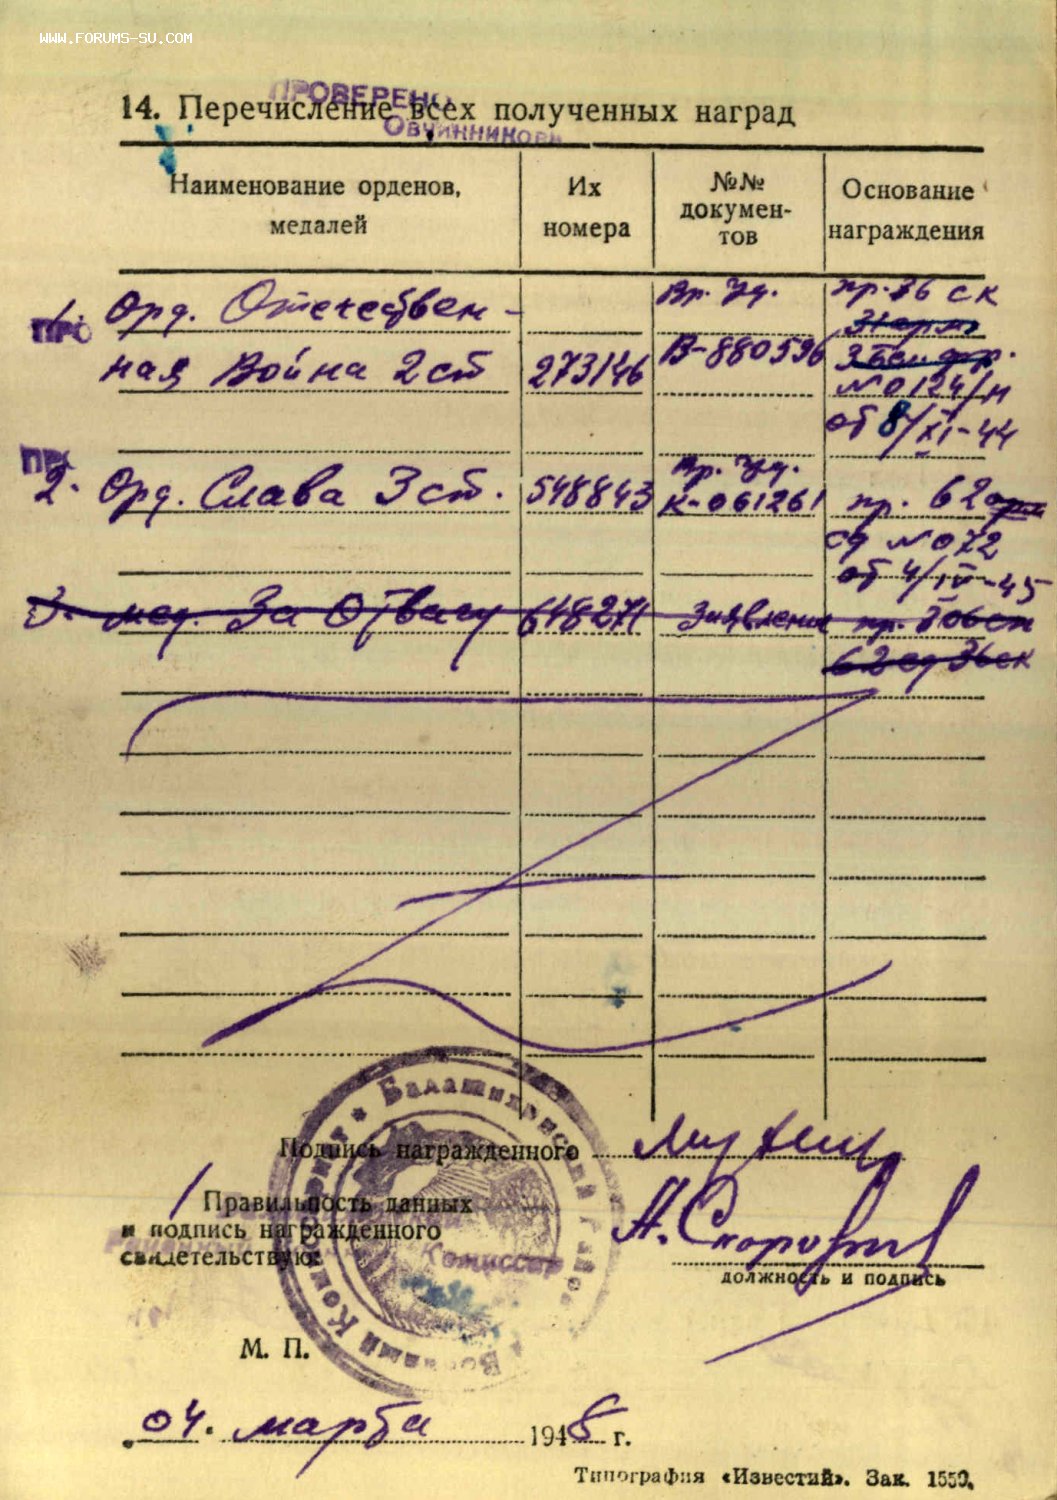 WWW.FORUMS-SU.COM
ПРОВЕРЕНО
14. Перечисление всех полученных наград
Овчинникова
Наименование орденов, медалей
Их номера
№№ докумен-тов
Основание награждения
1. Орд. Отечествен- Вр. уд. пр. 36 ск
ПРО
ная Война 2 ст 273146 В-880596
№ 0124/н
от 8/XI-44
ПРО
2. Орд. Слава 3 ст. 548843 Вр. уд. К-061261 пр. 62
сд № 072
от 4/IV-45
3. мед. За Отвагу 648271 Заявление пр. 306 сп
62 сд 36 ск
Подпись награжденного
Правильность данных
и подпись награжденного
свидетельствую:
должность и подпись
Балашихинский
Военный Комиссариат
Комиссар
М. П.
04. марта 1948 г.
Типография «Известий». Зак. 1550.